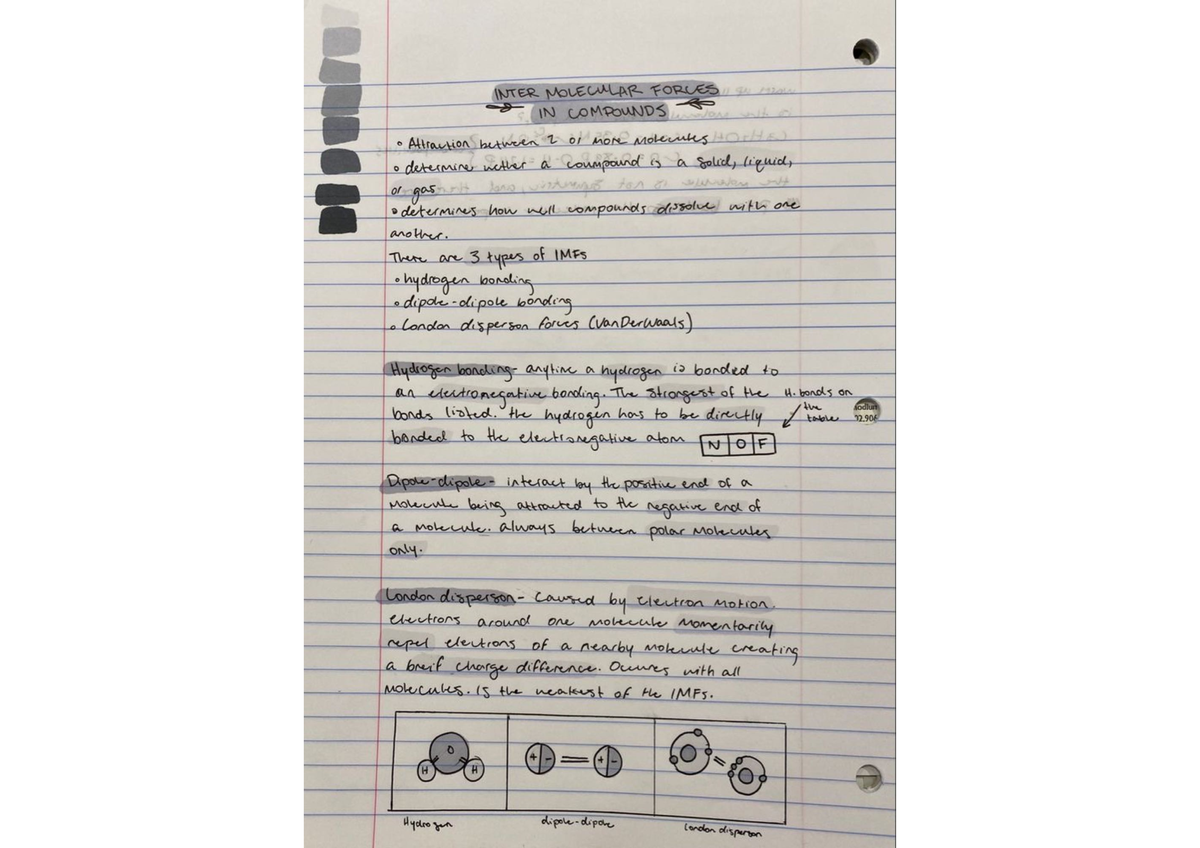 INTER MOLECULAR FORCES
IN COMPOUNDS
• Attraction between 2 or more molecules
• determine wether a coumpound is a solid, liquid,
or gas
• determines how well compounds dissolve with one
another.
There are 3 types of IMFs
• hydrogen bonding
• dipole-dipole bonding
• London disperson forces (VanDerWaals)
Hydrogen bonding- anytine a hydrogen is bonded to
an electromegative bonding. The strongest of the
bonds listed. the hydrogen has to be directly
bonded to the electronegative atom
H. bonds on
the
table
N O F
Dipole-dipole- interact by the positive end of a
molecule being attracted to the negative end of
a molecule. always between polar molecules
only.
London disperson- Caused by electron motion.
electrons around one molecule momentarily
repel electrons of a nearby molecule creating
a breif charge difference. Occures with all
molecules. Is the weakest of the IMFs.
O
H H
+ - + -
Hydrogen dipole-dipole London disperson